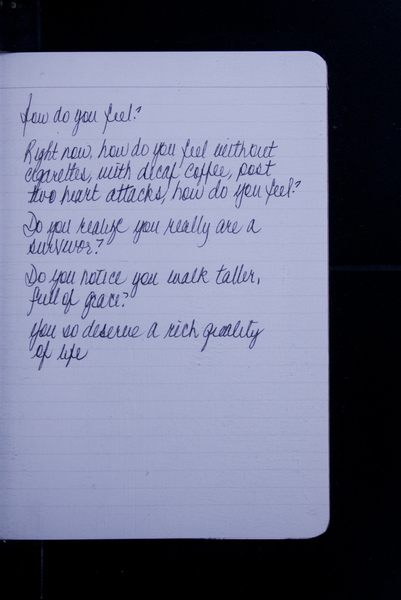 How do you feel?
Right now, how do you feel without
cigarettes, with decaf coffee, post
two heart attacks, how do you feel?
Do you realize you really are a
survivor?
Do you notice you walk taller,
full of grace?
You so deserve a rich quality
of life